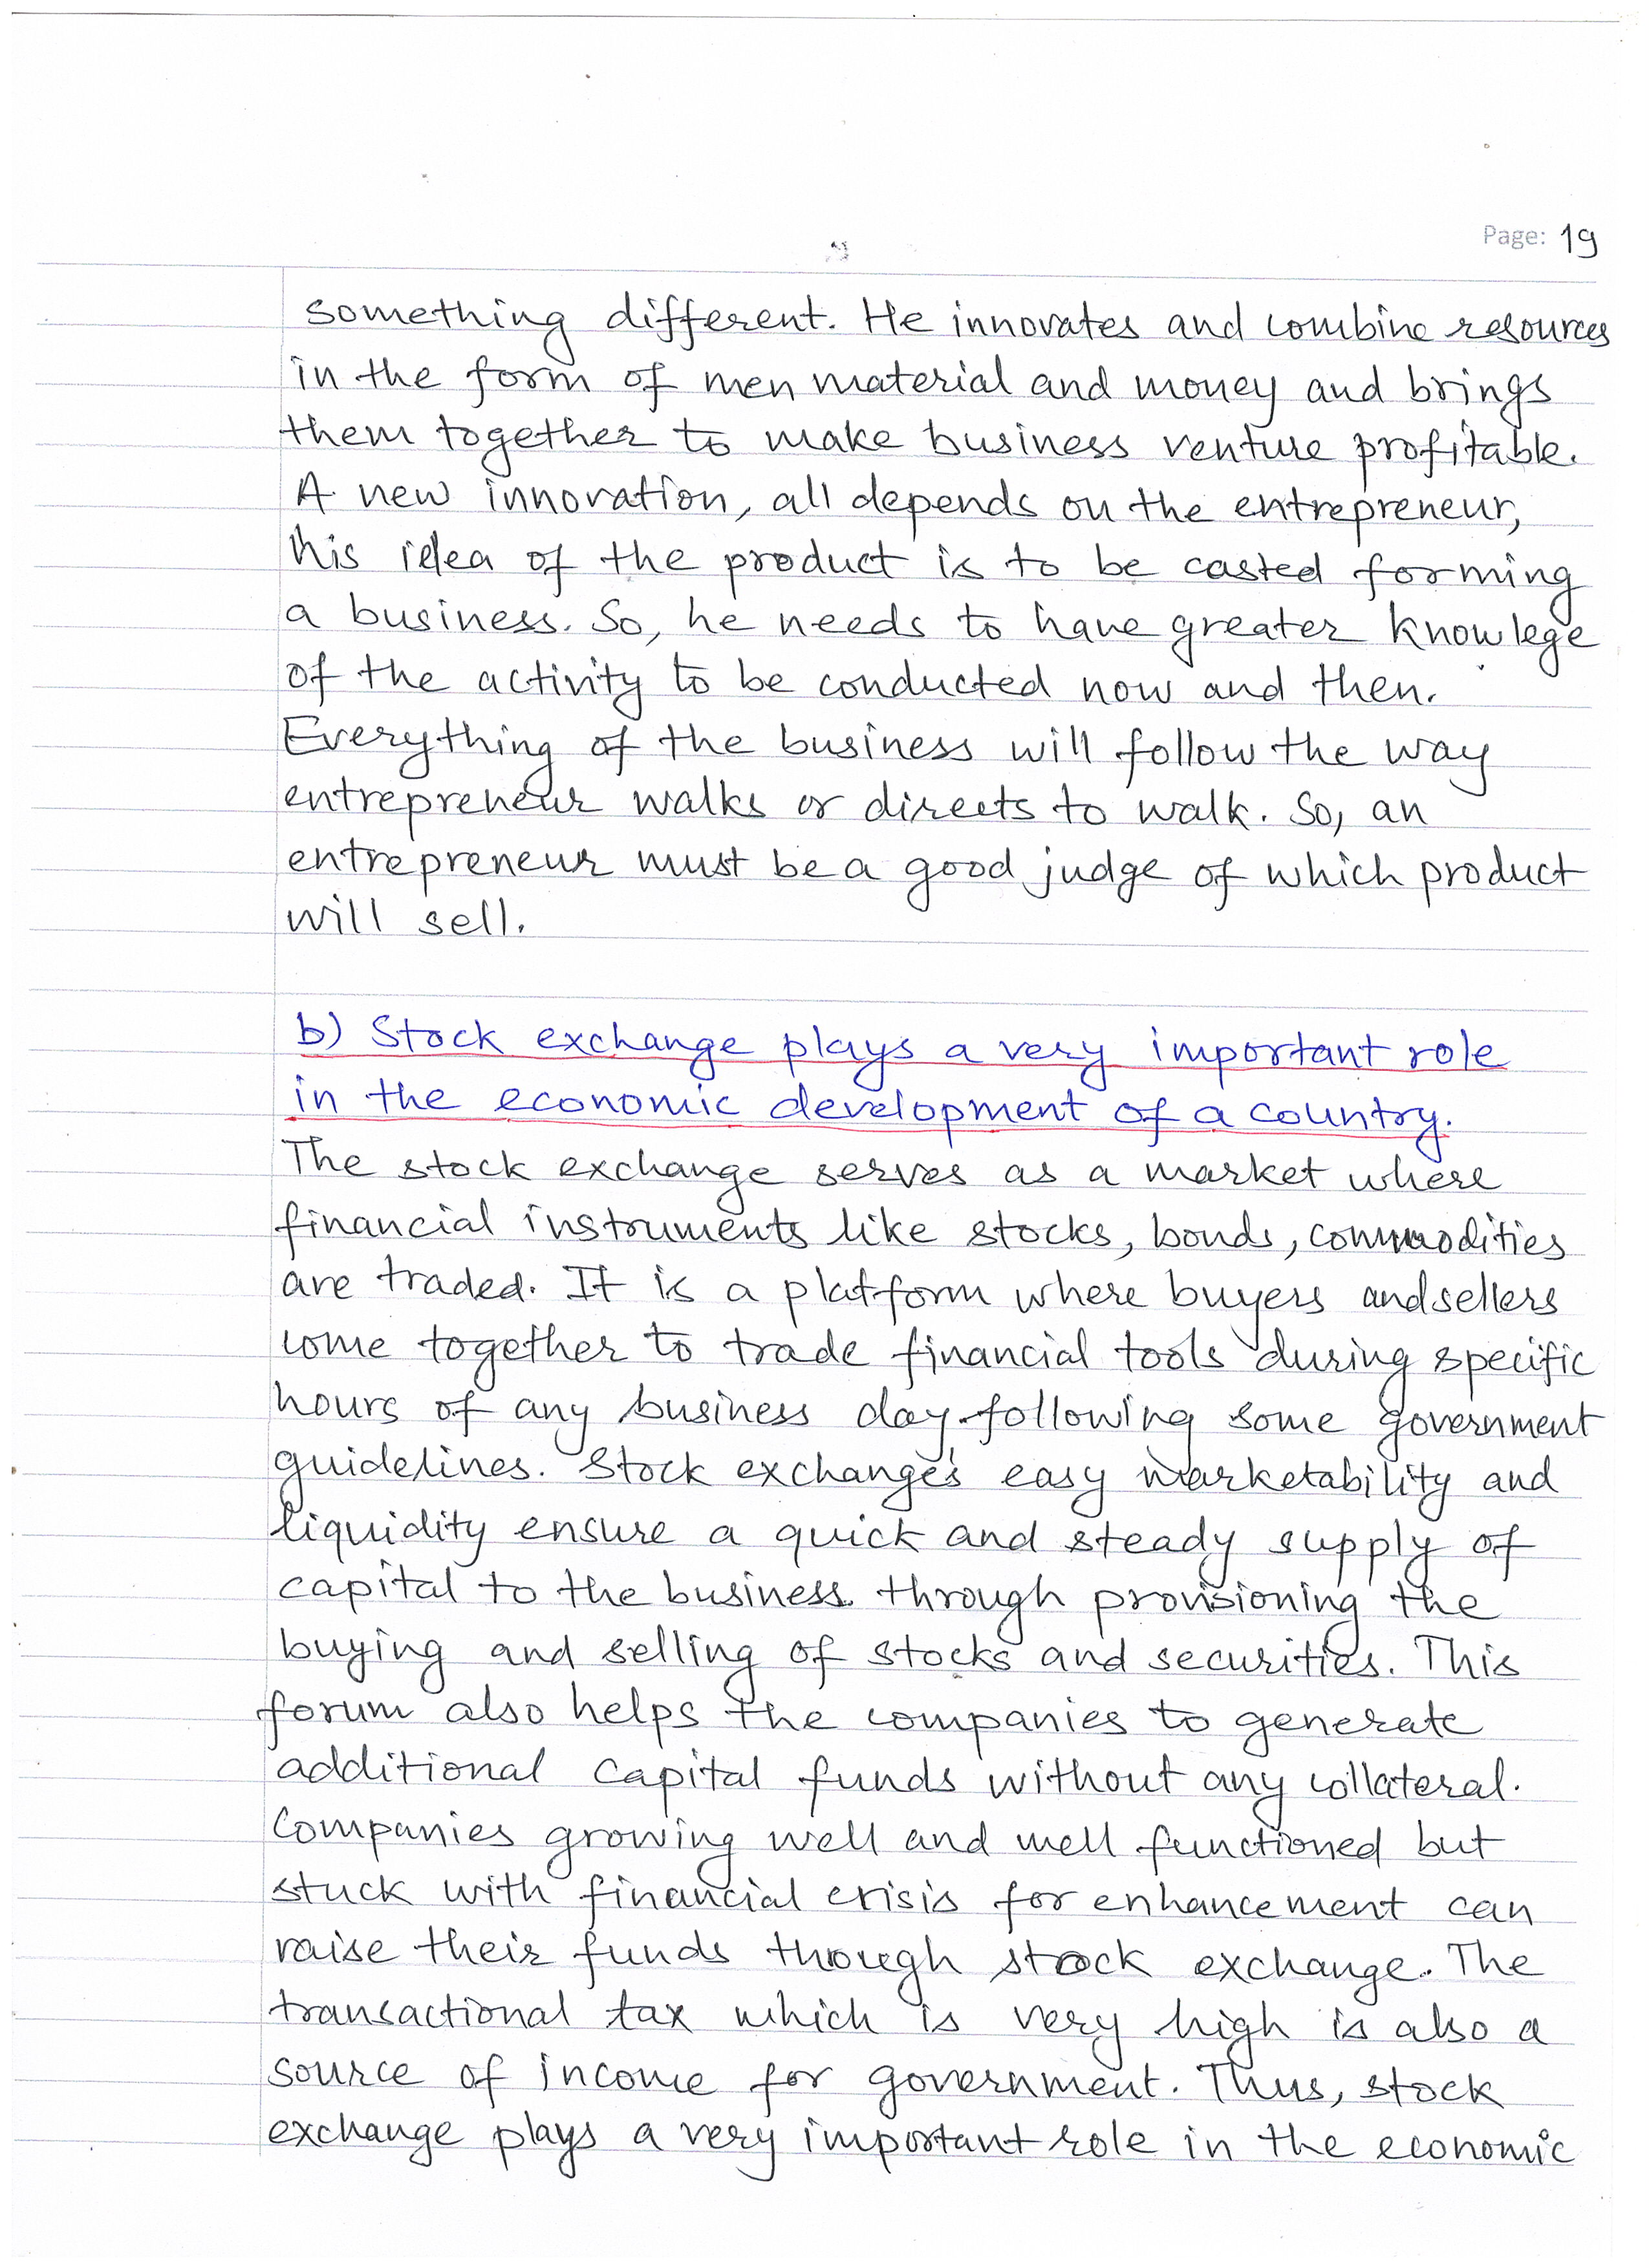 Page: 19
something different. He innovates and combine resources
in the form of men material and money and brings
them together to make business venture profitable.
A new innovation, all depends on the entrepreneur,
his idea of the product is to be casted forming
a business. So, he needs to have greater knowlege
of the activity to be conducted now and then.
Everything of the business will follow the way
entrepreneur walks or directs to walk. So, an
entrepreneur must be a good judge of which product
will sell.
b) Stock exchange plays a very important role
in the economic development of a country.
The stock exchange serves as a market where
financial instruments like stocks, bonds, commodities
are traded. It is a platform where buyers and sellers
come together to trade financial tools during specific
hours of any business day following some government
guidelines. Stock exchange's easy marketability and
liquidity ensure a quick and steady supply of
capital to the business through provisioning the
buying and selling of stocks and securities. This
forum also helps the companies to generate
additional capital funds without any collateral.
Companies growing well and well functioned but
stuck with financial crisis for enhancement can
raise their funds though stock exchange. The
transactional tax which is very high is also a
source of income for government. Thus, stock
exchange plays a very important role in the economic